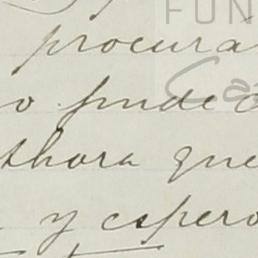 FUN
procura
o pude
thora que
y espero